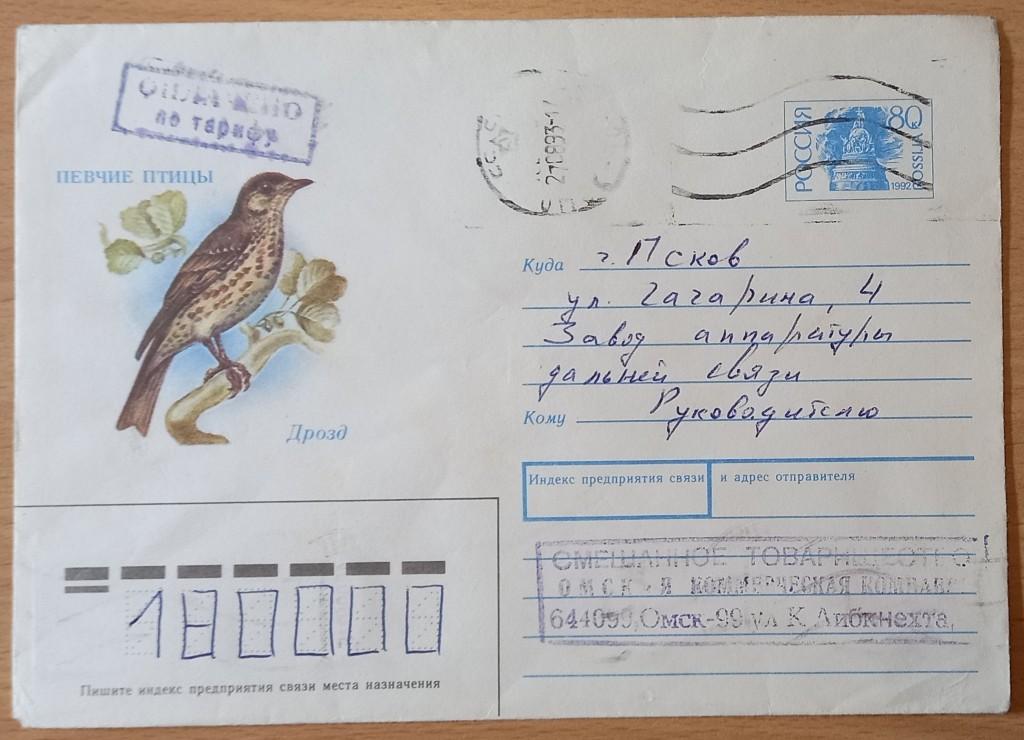 ОПЛАЧЕНО
по тарифу
ПЕВЧИЕ ПТИЦЫ
Дрозд
270893
РОССИЯ
80к
ROSSIJA
1992
Куда г. Псков
ул. Гагарина, 4
Завод аппаратуры
дальней связи
Кому Руководителю
Индекс предприятия связи и адрес отправителя
СМЕШАННОЕ ТОВАРИЩЕСТВО
КОММЕРЧЕСКАЯ
644099, Омск-99 ул К Либкнехта,
180000
Пишите индекс предприятия связи места назначения